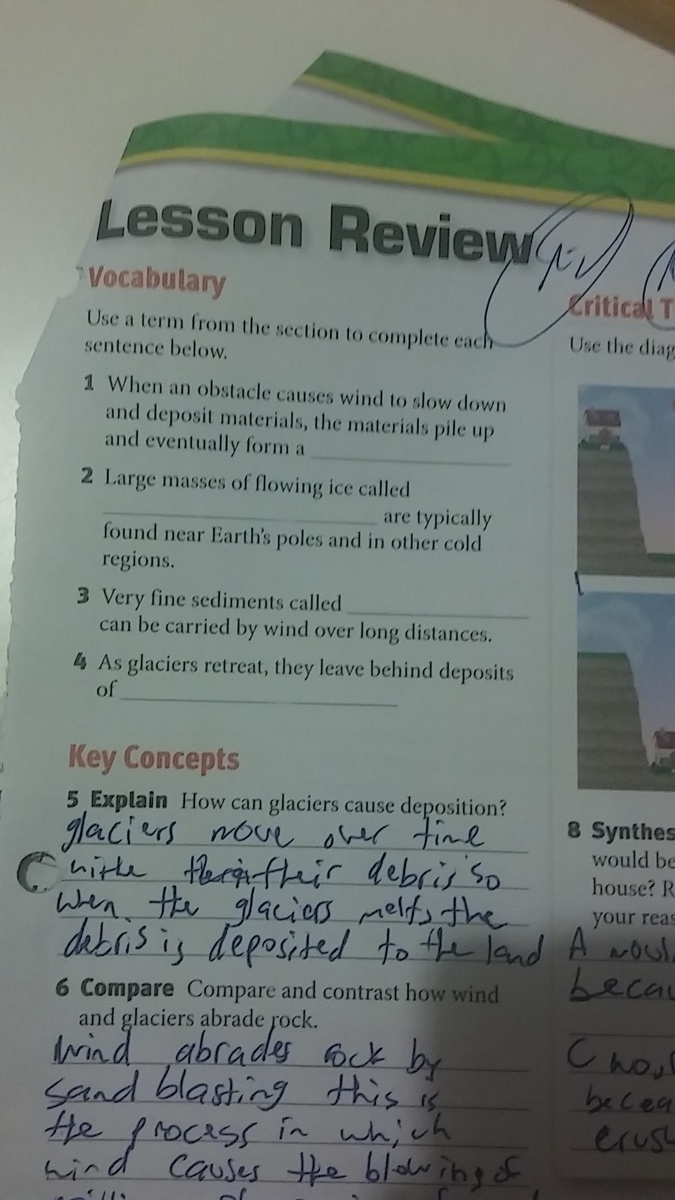 Lesson Review
Vocabulary
Use a term from the section to complete each
sentence below.
1 When an obstacle causes wind to slow down
and deposit materials, the materials pile up
and eventually form a
2 Large masses of flowing ice called
are typically
found near Earth's poles and in other cold
regions.
3 Very fine sediments called
can be carried by wind over long distances.
4 As glaciers retreat, they leave behind deposits
of
Key Concepts
5 Explain How can glaciers cause deposition?
glaciers move over time
their debris so
when the glaciers melts the
debris is deposited to the land
6 Compare Compare and contrast how wind
and glaciers abrade rock.
Wind abrades rock by
sand blasting this is
the process in which
wind causes the blowing of
Critical T
Use the diag
8 Synthes
would be
house? R
your reas
A woul
becau
C